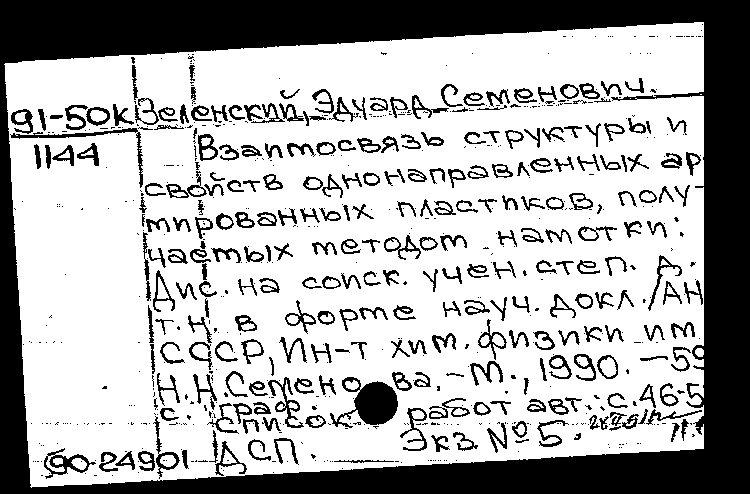 91-50к Зеленский, Эдуард Семенович.
1144 Взаимосвязь структуры и
свойств однонаправленных ар-
мированных пластиков, полу-
чаемых методом намотки:
Дис. на соиск. учен. степ. д.
т.н. в форме науч. докл./АН
СССР, Ин-т хим. физики им
Н.Н.Семенова.-М., 1990. -59
с. граф.
список работ авт.: с.46-5
90-24901 ДСП. Экз. №5.